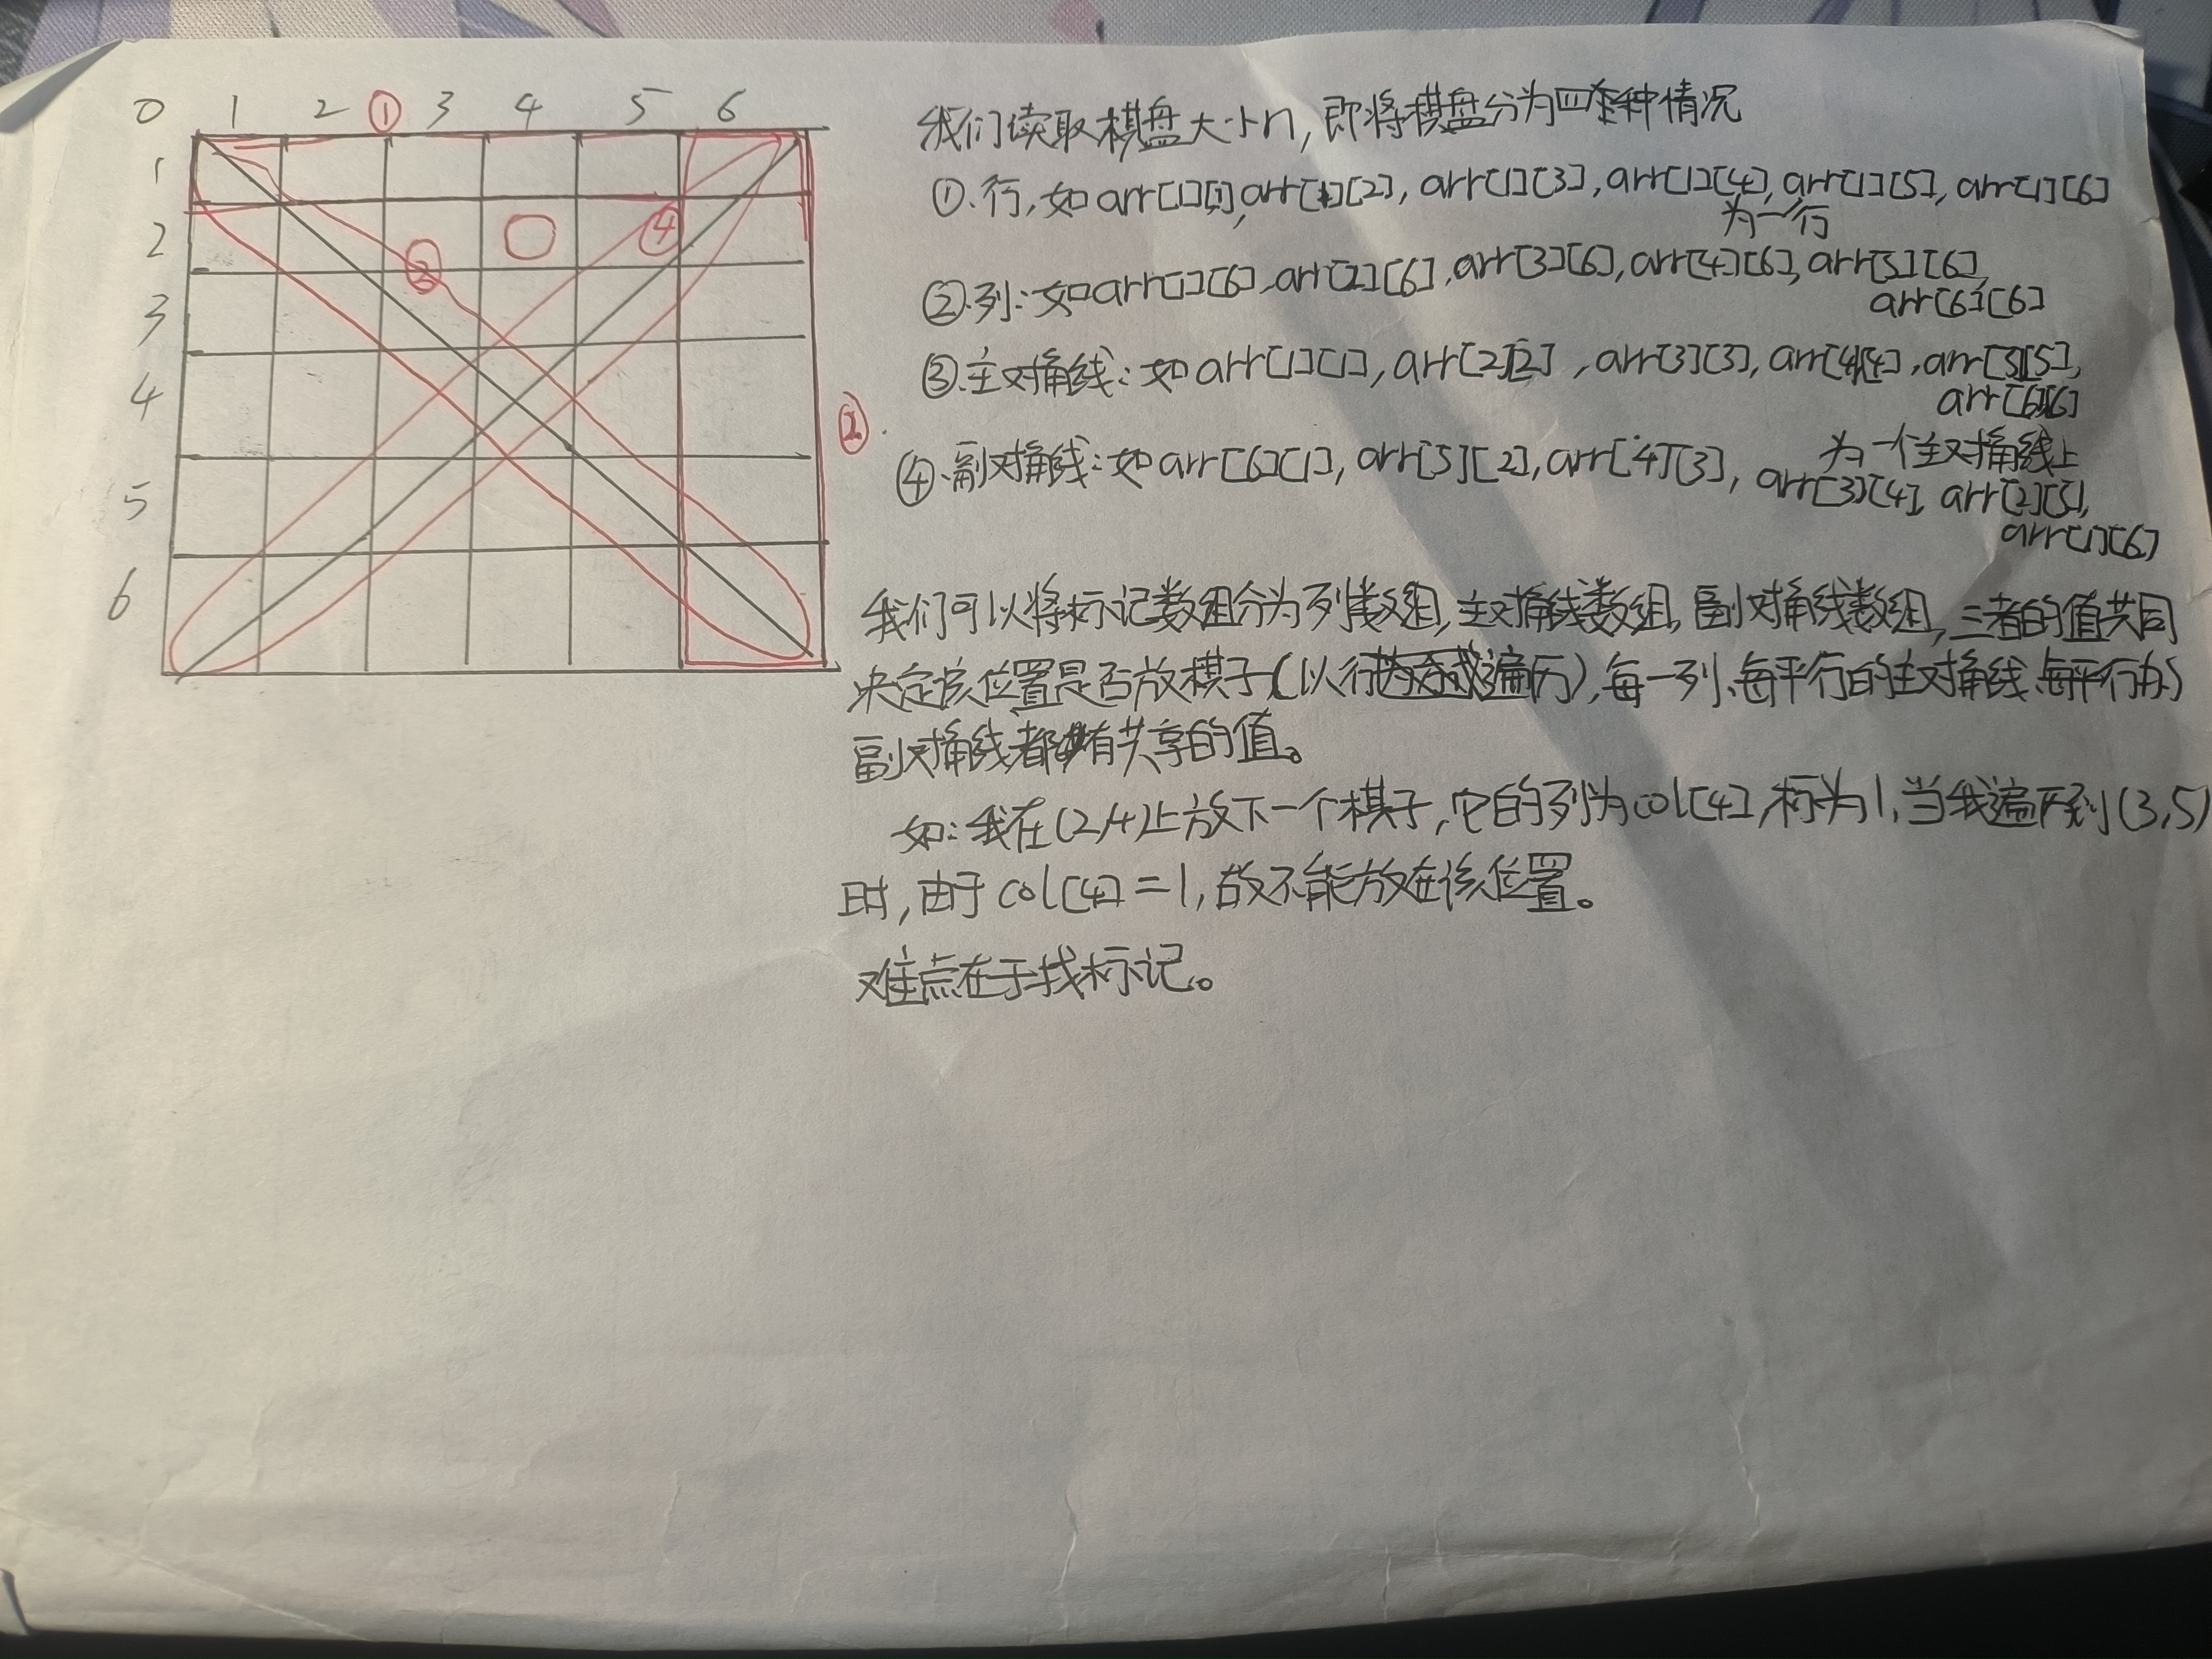 0 1 2 ① 3 4 5 6
1
2
3
4
5
6
④
②
我们读取棋盘大小n,即将棋盘分为四种情况
①.行,如arr[1][1],arr[1][2],arr[1][3],arr[1][4],arr[1][5],arr[1][6]
为一行
②.列:如arr[1][6],arr[2][6],arr[3][6],arr[4][6],arr[5][6],
arr[6][6]
③.主对角线:如arr[1][1],arr[2][2],arr[3][3],arr[4][4],arr[5][5],
arr[6][6]
为一个主对角线上
④.副对角线:如arr[6][1],arr[5][2],arr[4][3],arr[3][4],arr[2][5],
arr[1][6]
我们可以将标记数组分为列数组,主对角线数组,副对角线数组,三者的值共同
决定该位置是否放棋子(以行遍历),每一列、每平行的主对角线、每平行的
副对角线都有共享的值。
如:我在(2,4)上放下一个棋子,它的列为col[4],标为1,当我遍历到(3,5)
时,由于col[4]=1,故不能放在该位置。
难点在于找标记。